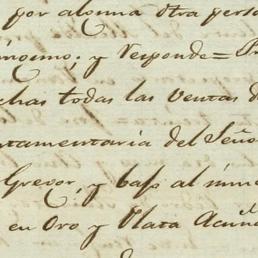 por alguna otra perso
ónosimo; y Responde=
chas todas las Ventas d
tamentaria del Seño
Gregor, y bajo al inme
en Oro y Plata Acuña